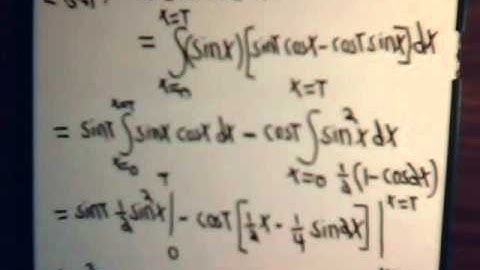 x=T
= ∫(sinx)[sinTcosx-cosTsinx]dx
x=0 x=T
= sinT∫sinxcosxdx - cosT∫sin²xdx
x=0 x=0 ½(1-cos2x)
= sinT ½sin²x|₀ᵀ - cosT[½x - ¼sin2x]|ˣ⁼ᵀ